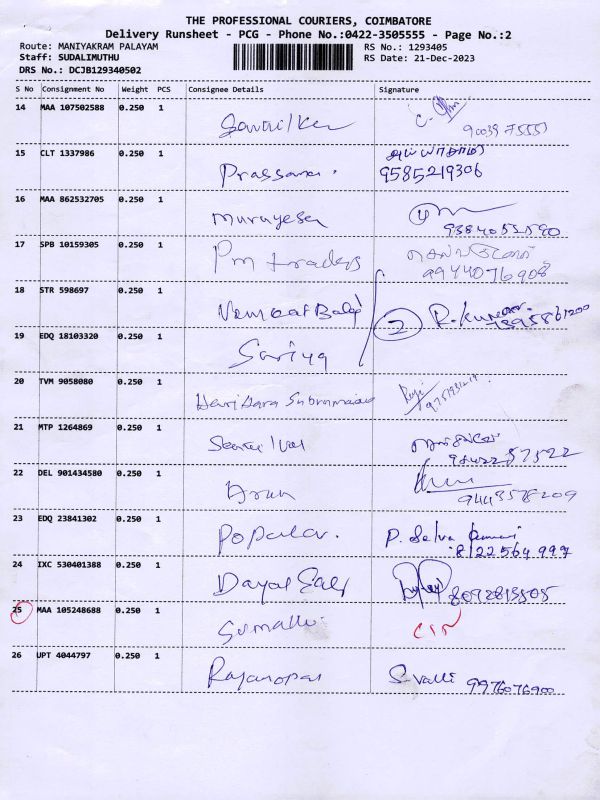 THE PROFESSIONAL COURIERS, COIMBATORE
Delivery Runsheet - PCG - Phone No.:0422-3505555 - Page No.:2
Route: MANIYAKRAM PALAYAM RS No.: 1293405
Staff: SUDALIMUTHU RS Date: 21-Dec-2023
DRS No.: DCJB129340502
S No Consignment No Weight PCS Consignee Details Signature
14 MAA 107502588 0.250 1
15 CLT 1337986 0.250 1 Prassanna. 9585219306
16 MAA 862532705 0.250 1 Murugesan
17 SPB 10159305 0.250 1 Pm traders 9944076908
18 STR 598697 0.250 1 Venkat Balaji 2 R. Kumar
19 EDQ 18103320 0.250 1 Sariya
20 TVM 9058080 0.250 1 Hari Hara Subramaian
21 MTP 1264869 0.250 1 9842257522
22 DEL 901434580 0.250 1 Arun 9443578209
23 EDQ 23841302 0.250 1 Popular. P. Selva kumar 8122564997
24 IXC 530401388 0.250 1 8092813505
25 MAA 105248688 0.250 1
26 UPT 4044797 0.250 1 Rajagopal S. valli 9976076900